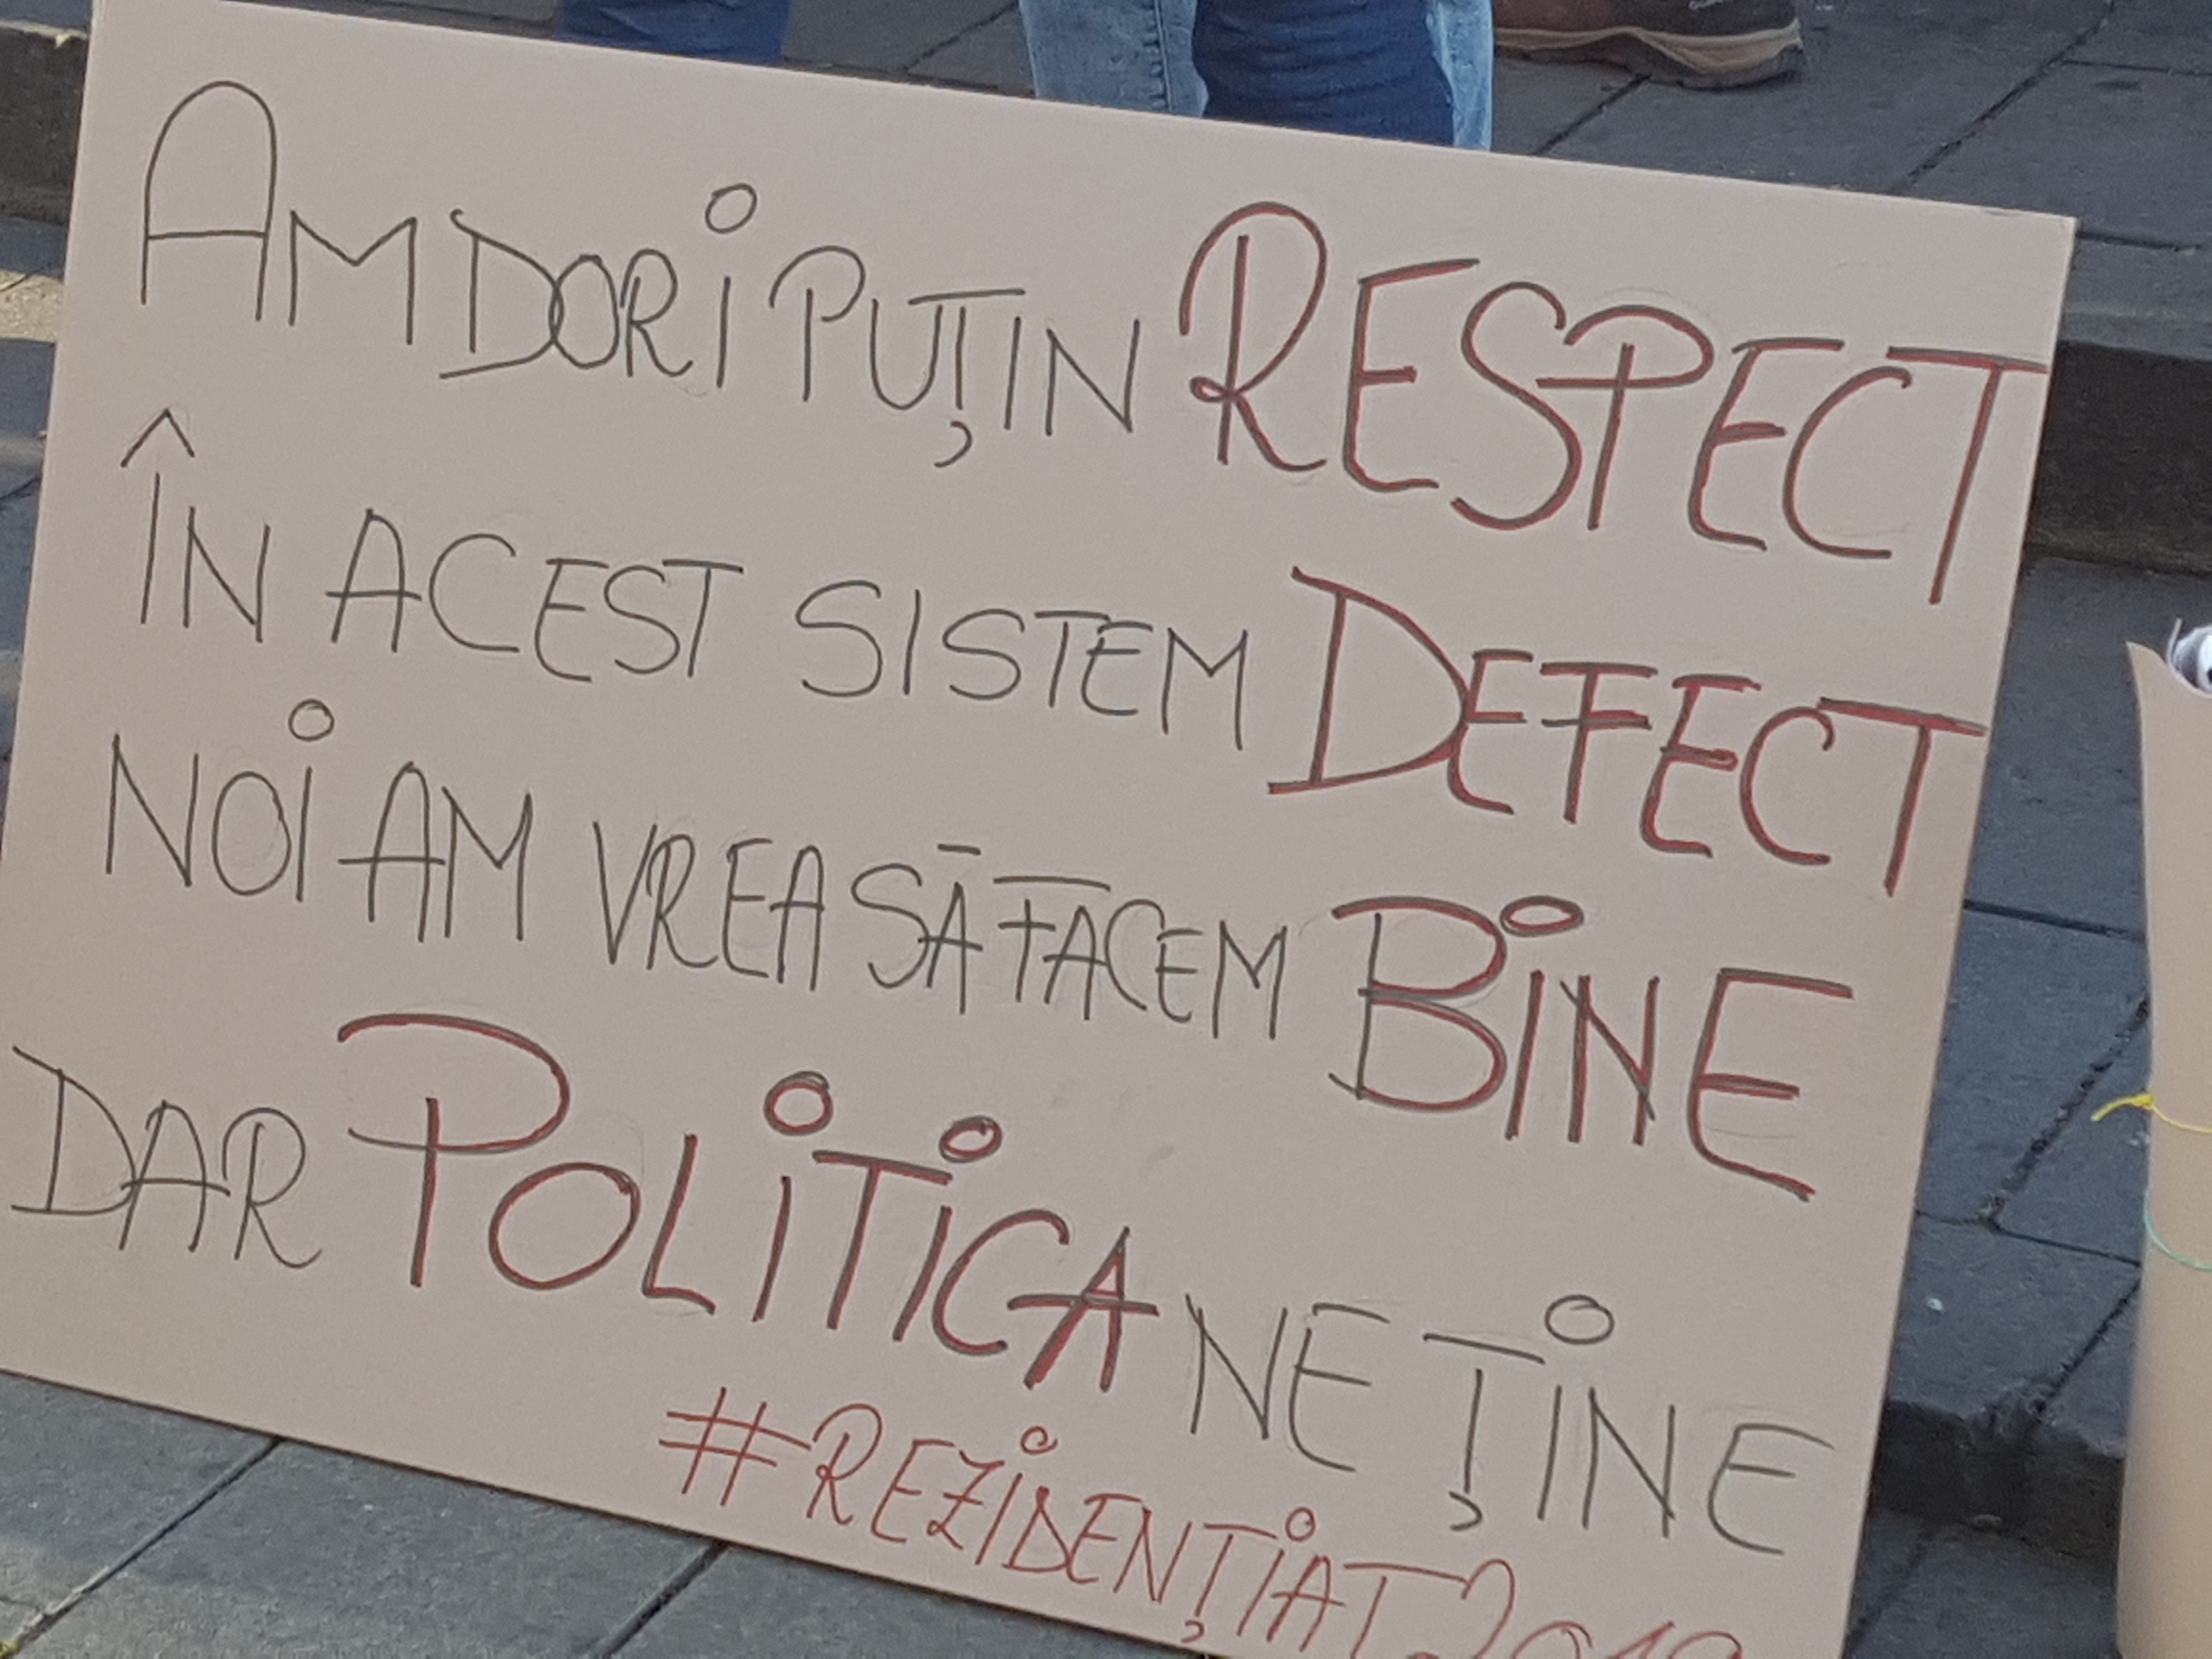 AM DORI PUȚIN RESPECT
ÎN ACEST SISTEM DEFECT
NOI AM VREA SĂ FACEM BINE
DAR POLITICA NE ȚINE
#REZIDENȚIAT